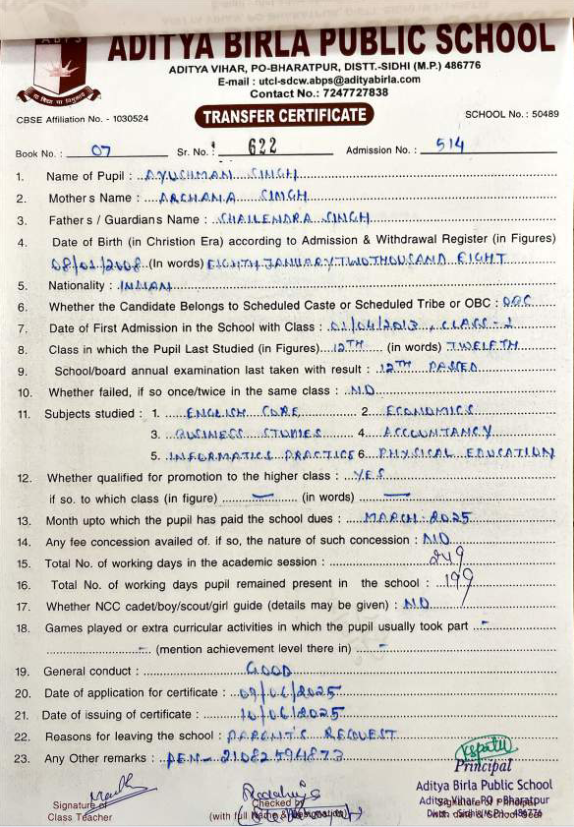 ADITYA BIRLA PUBLIC SCHOOL
ADITYA VIHAR, PO-BHARATPUR, DISTT.-SIDHI (M.P.) 486776
E-mail : utcl-sdcw.abps@adityabirla.com
Contact No.: 7247727838
CBSE Affiliation No. - 1030524 TRANSFER CERTIFICATE SCHOOL No. : 50489
Book No. : 07 Sr. No. : 622 Admission No. : 514
1. Name of Pupil : AYUSHMAN SINGH
2. Mother's Name : ARCHANA SINGH
3. Father's / Guardians Name : SHAILENDRA SINGH
4. Date of Birth (in Christion Era) according to Admission & Withdrawal Register (in Figures)
08/01/2008 (In words) EIGHTH JANUARY TWO THOUSAND EIGHT
5. Nationality : INDIAN
6. Whether the Candidate Belongs to Scheduled Caste or Scheduled Tribe or OBC : OBC
7. Date of First Admission in the School with Class : 01/04/2013, CLASS-1
8. Class in which the Pupil Last Studied (in Figures) 12TH (in words) TWELFTH
9. School/board annual examination last taken with result : 12TH PASSED
10. Whether failed, if so once/twice in the same class : NO
11. Subjects studied : 1. ENGLISH CORE 2. ECONOMICS
3. BUSINESS STUDIES 4. ACCOUNTANCY
5. INFORMATICS PRACTICE 6. PHYSICAL EDUCATION
12. Whether qualified for promotion to the higher class : YES
if so. to which class (in figure) — (in words) —
13. Month upto which the pupil has paid the school dues : MARCH-2025
14. Any fee concession availed of. if so, the nature of such concession : NO
15. Total No. of working days in the academic session : 249
16. Total No. of working days pupil remained present in the school : 199
17. Whether NCC cadet/boy/scout/girl guide (details may be given) : NO
18. Games played or extra curricular activities in which the pupil usually took part -
- (mention achievement level there in) -
19. General conduct : GOOD
20. Date of application for certificate : 09/06/2025
21. Date of issuing of certificate : 10/06/2025
22. Reasons for leaving the school : PARENT'S REQUEST
23. Any Other remarks : PEN- 21082594873
Principal
Aditya Birla Public School
Aditya Vihar, PO - Bharatpur
Distt. - Sidhi (M.P.) - 486776
Signature of
Class Teacher
Checked by
(with full Name & Designation)
Signature of Principal
with date & School Seal